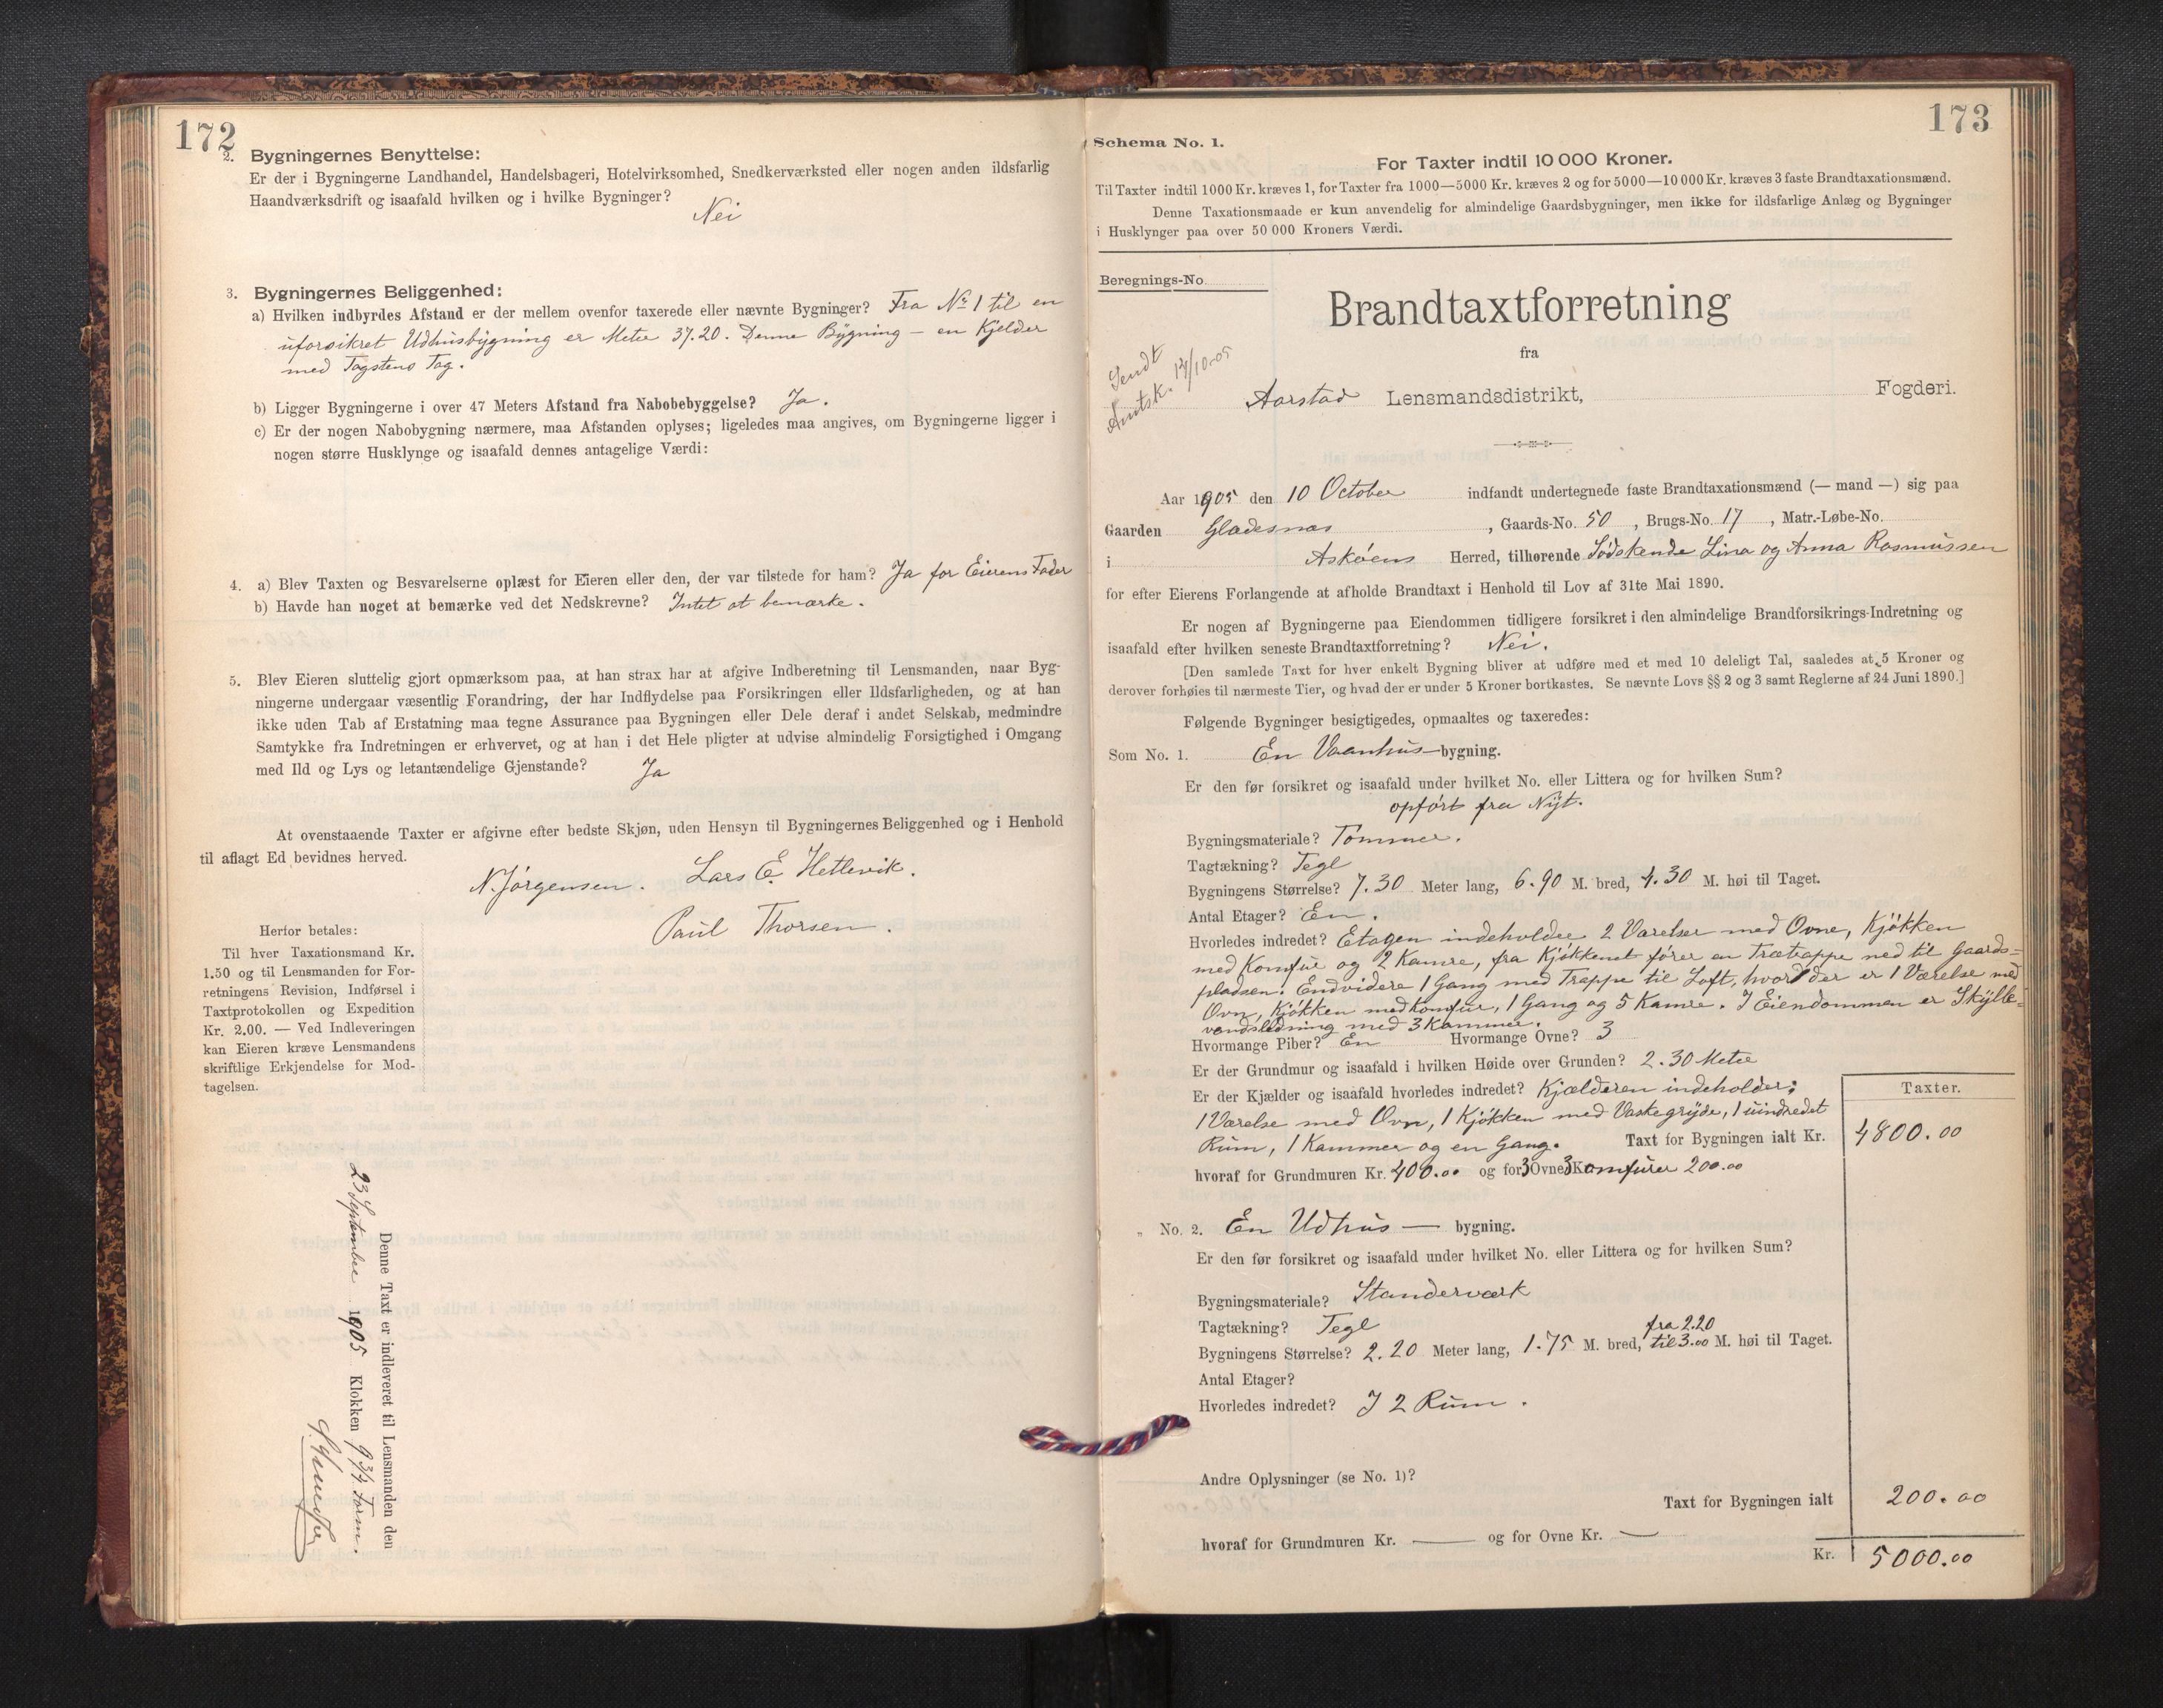 172
2. Bygningernes Benyttelse:
Er der i Bygningerne Landhandel, Handelsbageri, Hotelvirksomhed, Snedkerværksted eller nogen anden ildsfarlig
Haandværksdrift og isaafald hvilken og i hvilke Bygninger?
Nei
3. Bygningernes Beliggenhed:
a) Hvilken indbyrdes Afstand er der mellem ovenfor taxerede eller nævnte Bygninger? Fra No 1 til en
uforsikret Udhusbygning er Meter 37.20. Denne Bygning – en Kjelder
med Tagstens Tag.
b) Ligger Bygningerne i over 47 Meters Afstand fra Nabobebyggelse? Ja.
c) Er der nogen Nabobygning nærmere, maa Afstanden oplyses; ligeledes maa angives, om Bygningerne ligger i
nogen større Husklynge og isaafald dennes antagelige Værdi:
4. a) Blev Taxten og Besvarelserne oplæst for Eieren eller den, der var tilstede for ham? Ja for Eierens Fader
b) Havde han noget at bemærke ved det Nedskrevne? Intet at bemærke.
5. Blev Eieren sluttelig gjort opmærksom paa, at han strax har at afgive Indberetning til Lensmanden, naar Byg-
ningerne undergaar væsentlig Forandring, der har Indflydelse paa Forsikringen eller Ildsfarligheden, og at han
ikke uden Tab af Erstatning maa tegne Assurance paa Bygningen eller Dele deraf i andet Selskab, medmindre
Samtykke fra Indretningen er erhvervet, og at han i det Hele pligter at udvise almindelig Forsigtighed i Omgang
med Ild og Lys og letantændelige Gjenstande? Ja
At ovenstaaende Taxter er afgivne efter bedste Skjøn, uden Hensyn til Bygningernes Beliggenhed og i Henhold
til aflagt Ed bevidnes herved.
N. Jørgensen. Lars E. Hetlevik.
Paul Thorsen.
Herfor betales:
Til hver Taxationsmand Kr.
1.50 og til Lensmanden for For-
retningens Revision, Indførsel i
Taxtprotokollen og Expedition
Kr. 2.00. — Ved Indleveringen
kan Eieren kræve Lensmandens
skriftlige Erkjendelse for Mod-
tagelsen.
Denne Taxt er indleveret til Lensmanden den
23 September 1905 Klokken 9 3/4 Form.
173
Schema No. 1.
For Taxter indtil 10 000 Kroner.
Til Taxter indtil 1000 Kr. kræves 1, for Taxter fra 1000—5000 Kr. kræves 2 og for 5000—10 000 Kr. kræves 3 faste Brandtaxationsmænd.
Denne Taxationsmaade er kun anvendelig for almindelige Gaardsbygninger, men ikke for ildsfarlige Anlæg og Bygninger
i Husklynger paa over 50 000 Kroners Værdi.
Beregnings-No.
Brandtaxtforretning
fra
Sendt
Amtsk. 13/10-05
Aarstad Lensmandsdistrikt, Fogderi.
Aar 1905 den 10 October indfandt undertegnede faste Brandtaxationsmænd (— mand —) sig paa
Gaarden Gladesnæs, Gaards-No. 50, Brugs-No. 17, Matr.-Løbe-No.
i Askøens Herred, tilhørende Södskende Lina og Anna Rasmussen
for efter Eierens Forlangende at afholde Brandtaxt i Henhold til Lov af 31te Mai 1890.
Er nogen af Bygningerne paa Eiendommen tidligere forsikret i den almindelige Brandforsikrings-Indretning og
isaafald efter hvilken seneste Brandtaxtforretning? Nei.
[Den samlede Taxt for hver enkelt Bygning bliver at udføre med et med 10 deleligt Tal, saaledes at 5 Kroner og
derover forhøies til nærmeste Tier, og hvad der er under 5 Kroner bortkastes. Se nævnte Lovs §§ 2 og 3 samt Reglerne af 24 Juni 1890.]
Følgende Bygninger besigtigedes, opmaaltes og taxeredes:
Som No. 1. En Vaanhus-bygning.
Er den før forsikret og isaafald under hvilket No. eller Littera og for hvilken Sum?
opfört fra Nyt.
Bygningsmateriale? Tømmer.
Tagtækning? Tegl
Bygningens Størrelse? 7.30 Meter lang, 6.90 M. bred, 4.30 M. høi til Taget.
Antal Etager? En.
Hvorledes indredet? Etagen indeholder 2 Værelser med Ovne, Kjökken
med Komfur og 2 Kamre, fra Kjökkenet förer en Trætrappe ned til Gaards-
pladsen. Endvidere 1 Gang med Trappe til Loft, hvor der er 1 Værelse med
Ovn, Kjökken med Komfur, 1 Gang og 5 Kamre. I Eiendommen er Skylle-
vandsledning med 3 Kummer.
Hvormange Piber? En Hvormange Ovne? 3
Er der Grundmur og isaafald i hvilken Høide over Grunden? 2.30 Meter
Er der Kjælder og isaafald hvorledes indredet? Kjælderen indeholder:
1 Værelse med Ovn, 1 Kjökken med Vaskegryde, 1 uindredet
Rum, 1 Kammer og en Gang. Taxt for Bygningen ialt Kr.
Taxter.
4800.00
hvoraf for Grundmuren Kr. 400.00 og for 3 Ovne 3 Komfurer 200.00
" No. 2. En Udhus — bygning.
Er den før forsikret og isaafald under hvilket No. eller Littera og for hvilken Sum?
Bygningsmateriale? Standerværk
Tagtækning? Tegl
Bygningens Størrelse? 2.20 Meter lang, 1.75 M. bred, fra 2.20 til 3.00 M. høi til Taget.
Antal Etager?
Hvorledes indredet? I 2 Rum.
Andre Oplysninger (se No. 1)?
Taxt for Bygningen ialt 200.00
hvoraf for Grundmuren Kr. — og for Ovne Kr. —
Kr. 5000.00